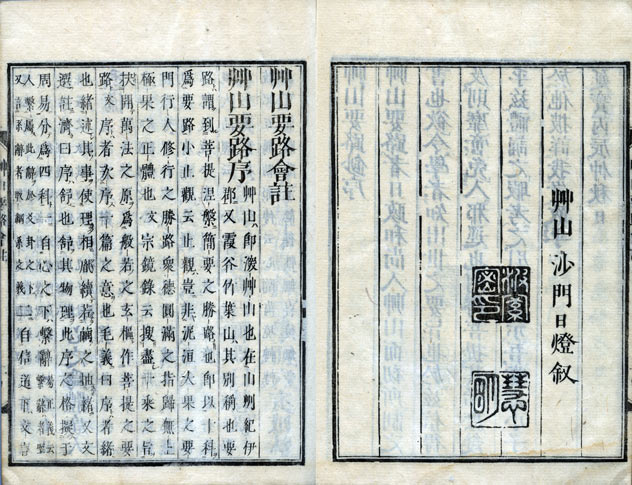 艸山沙門日燈叙
艸山要路會註
艸山要路序
艸山卽深艸山也在山州紀伊
郡又霞谷竹葉山其別稱也要
路謂到菩提涅槃簡要之勝路也卽以十科
爲要路小止觀云止觀豈非泥洹大果之要
門行人修行之勝路衆德圓滿之指歸無上
極果之正體也又宗鏡錄云搜盡一乘之旨
抉開萬法之原爲般若之玄樞作菩提之要
路文序者叙十篇之意也毛義云序者緒
也緒述其事使理相胤續若繭之抽緒又文
選註濟曰序舒也舒其物理此序之格擬于
周易分爲四科一自心之下繫辭
二自信道下文言